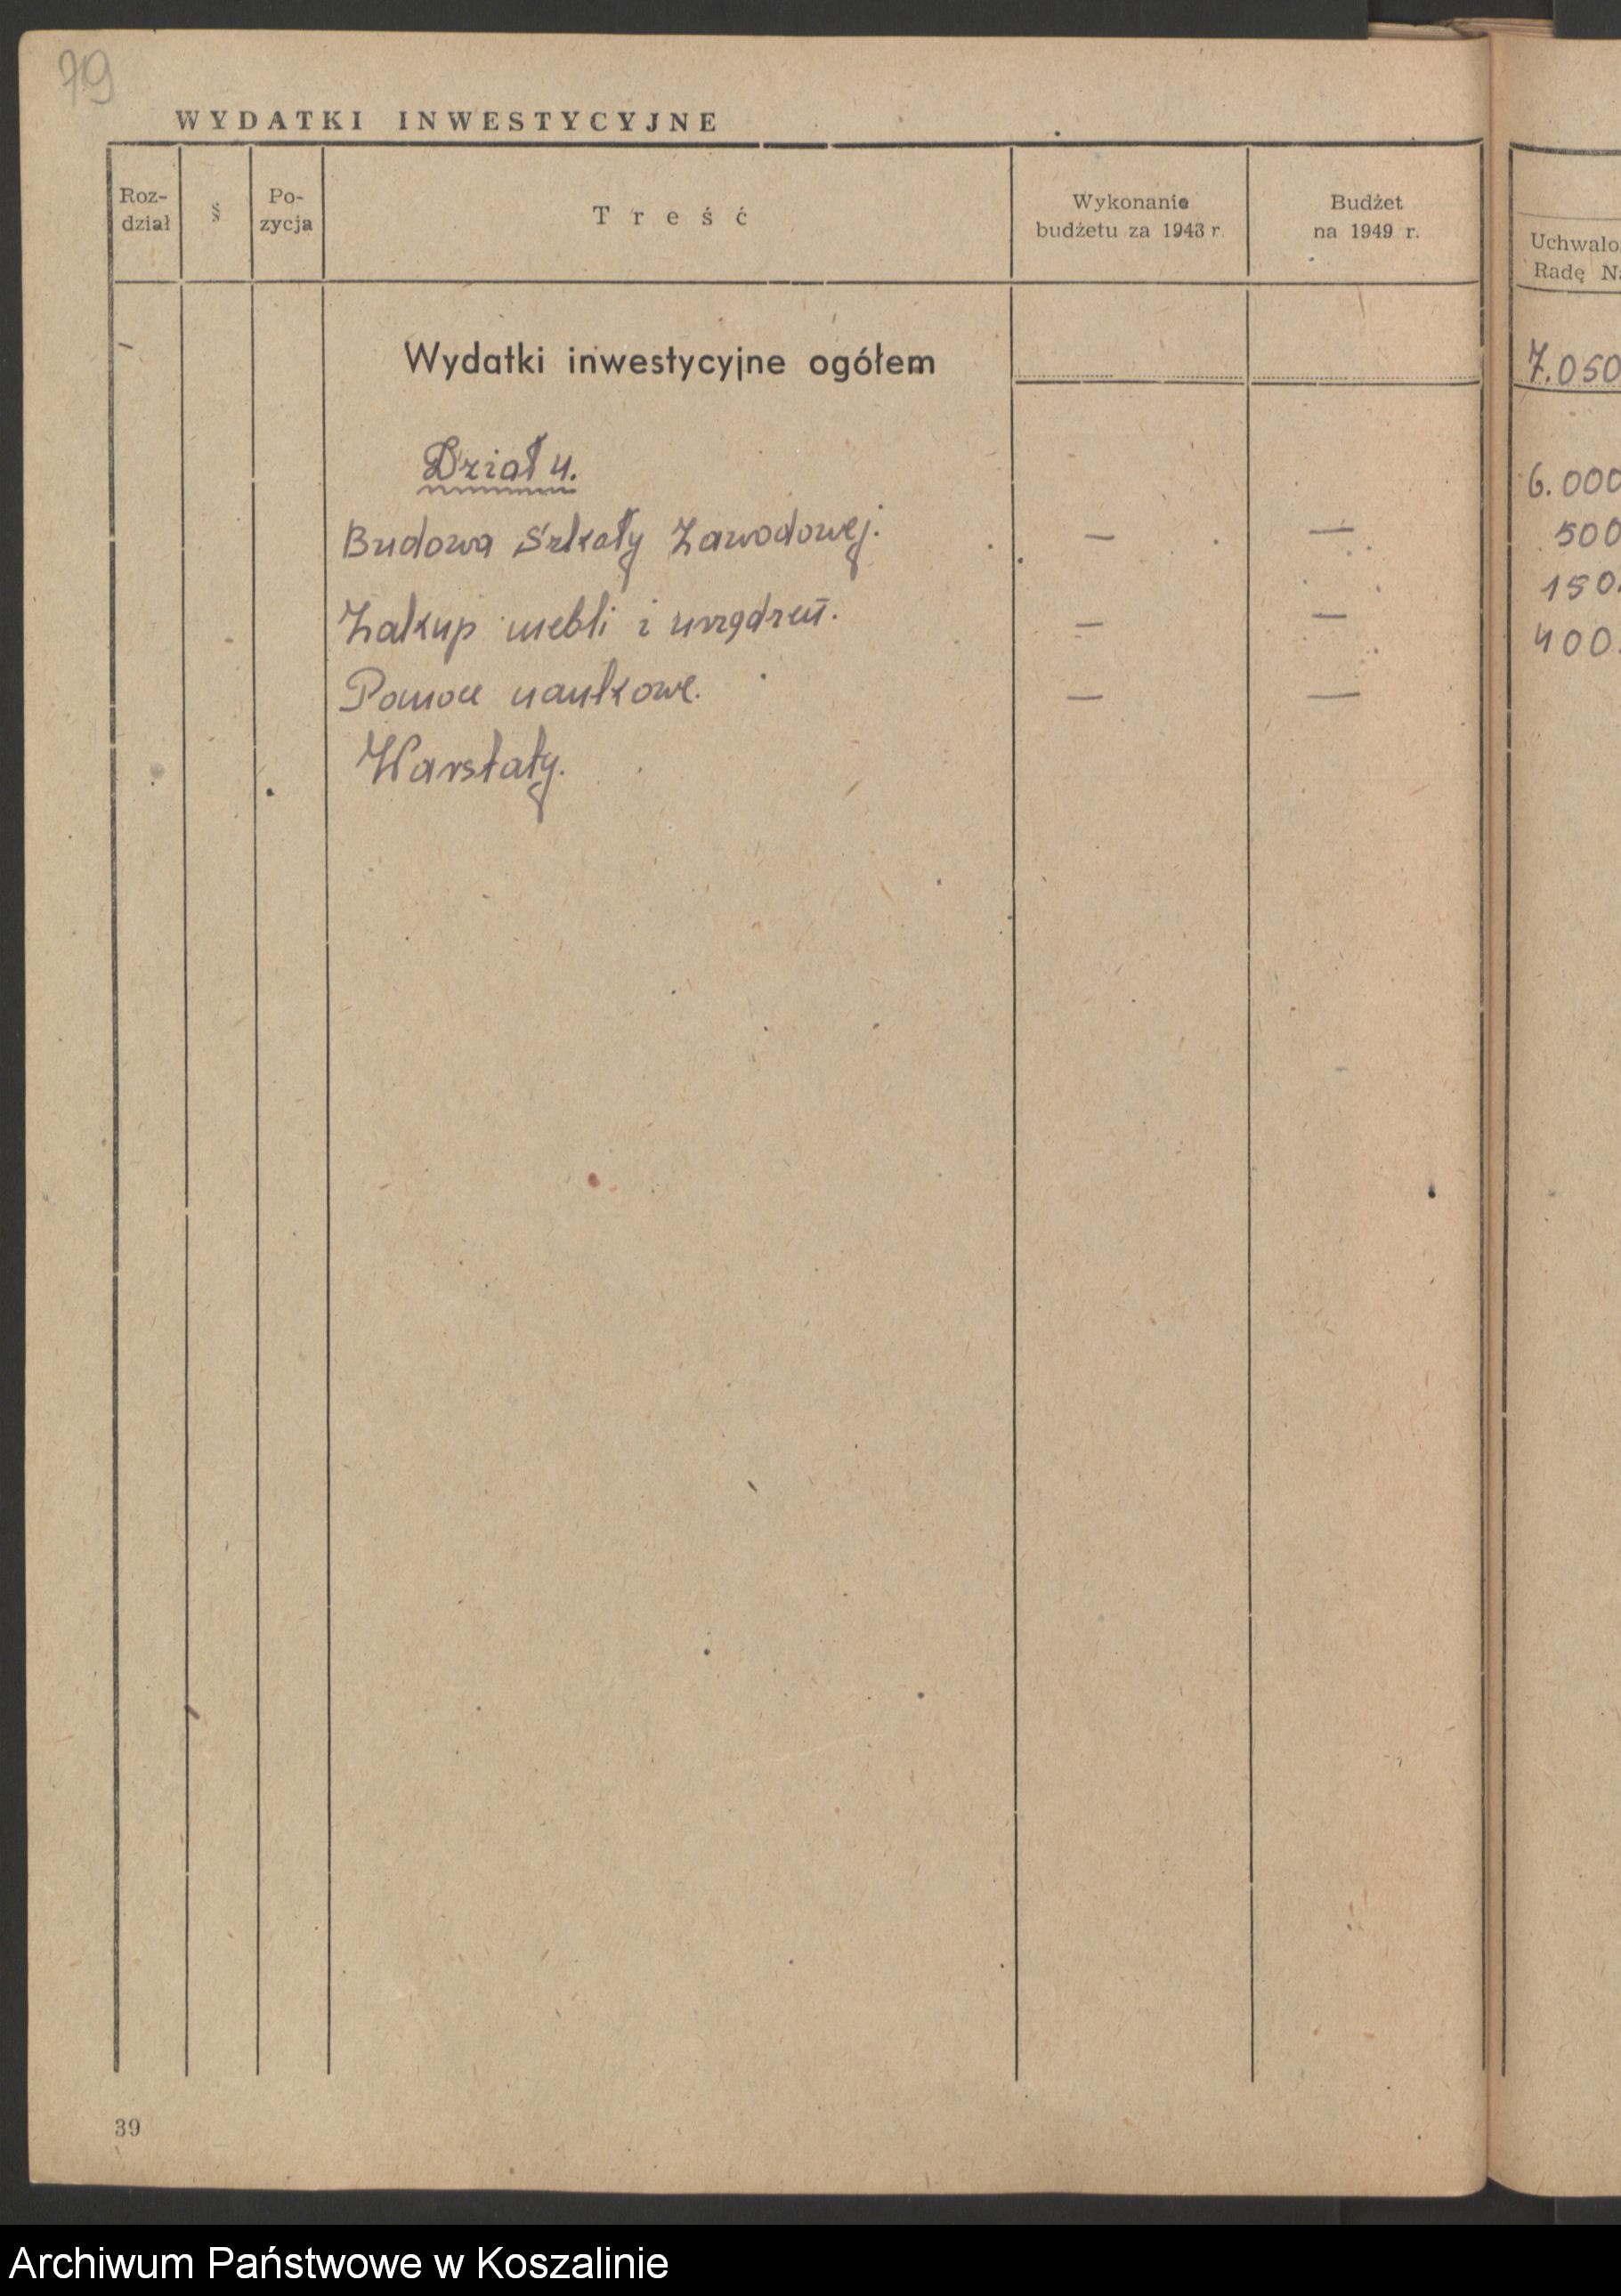 79
WYDATKI INWESTYCYJNE
Roz-
dział
§
Po-
zycja
Treść
Wykonanie
budżetu za 1948 r.
Budżet
na 1949 r.
Uchwalo
Radę Na
Wydatki inwestycyjne ogółem
7.050
Dział 4.
6.000
Budowa Szkoły Zawodowej. — —
500
Zakup mebli i urządzeń. — —
150.
Pomoce naukowe. — —
400.
Warstaty.
39
Archiwum Państwowe w Koszalinie